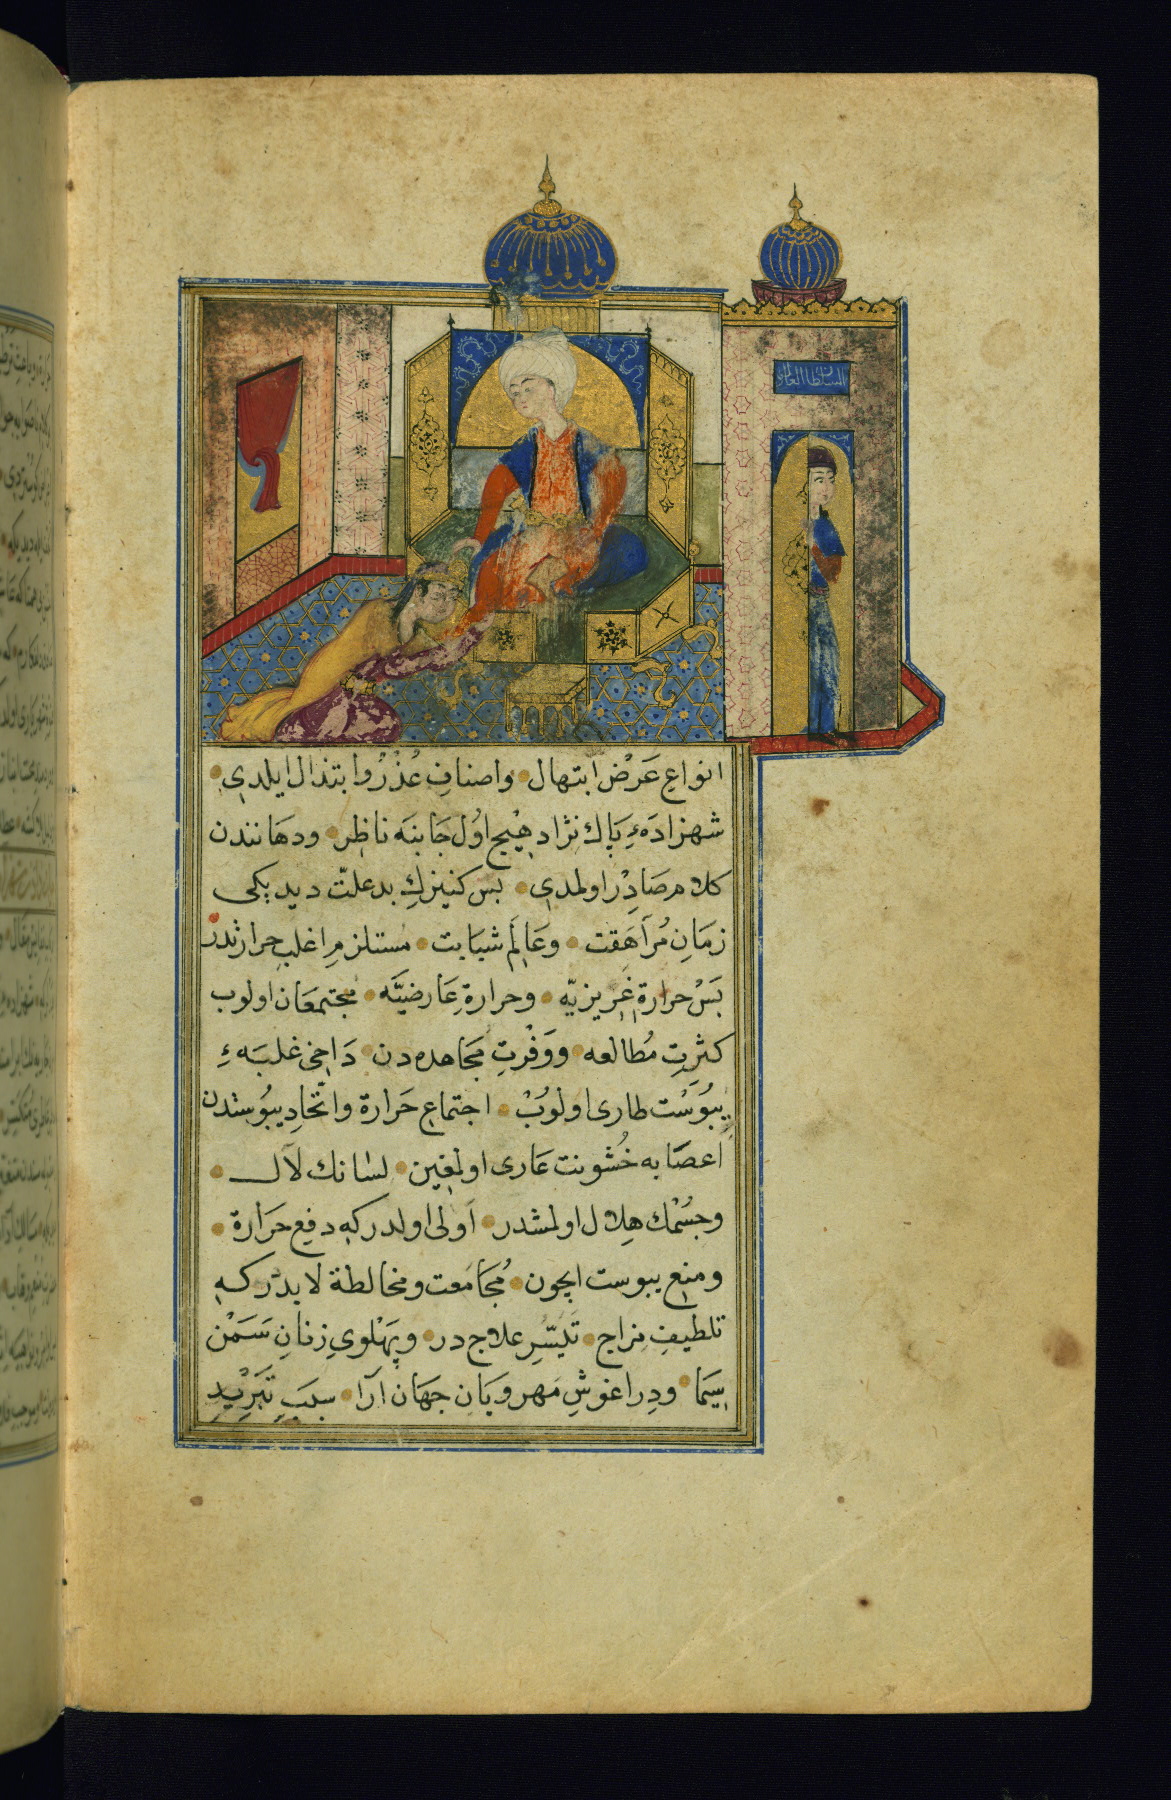 السلطان العادل
انواع عَرْض ابتهال واصنافِ عُذْرُ وابتذال ايلدى
شهزادهٔ پاك نژاد هيچ اوُل جَانبَه ناظِر ودهَانندن
كلام صَادِر اولمدى بس كنيزك بدعلّت ديديكى
زمَانِ مُرَاهَقت وعَالَم شبَابت مستلزمِ اغلبِ حرارتدر
بَسْ حرارة غريزيّه وحرارةِ عَارضيَّه مجتمعَان اولوب
كثرتِ مُطالعه ووَفْرتِ مجَاهده دن دَاخى غلبَهءِ
يبُوسْت طارى اولوُبْ اجتماعِ حَرارة واتّحادِ يبُوستدن
اعصَابه خُشونت عَارى اولمغين لسَانك لال
وجسْمك هِلال اولمشدر اَولى اولدركه دفعِ حَرَارة
ومنع يبوست ايچون مُجَامَعت ومخالطة لابدّر كه
تلطيفِ مزاج تَيسّرِ علاجدر وپَهْلوىِ زنانِ سَمَنْ
سيَما ودر اغوشِ مَهرويَانِ جهَان آرَا سبَبِ تَبَرِيْدِ